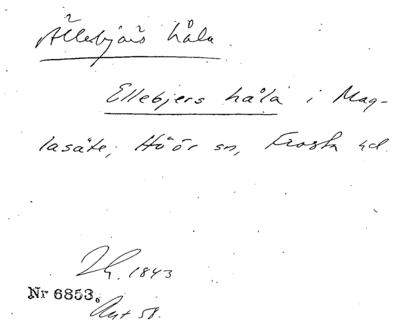 Ällebjärs håla.
Ellebjers håla i Mag-
lasäte, Höör sn, Frosta hd.
1843
Nr 6853.